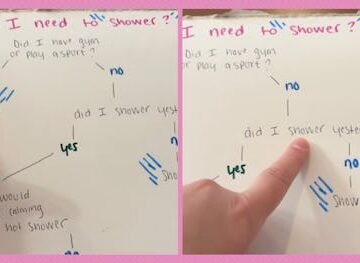 I need to shower?
Did I have gym
or play a sport?
no
did I shower yeste
yes
no
Sho
would
calming
hot shower
no
I need to shower?
Did I have gym
or play a sport?
no
did I shower yeste
yes
no
Show